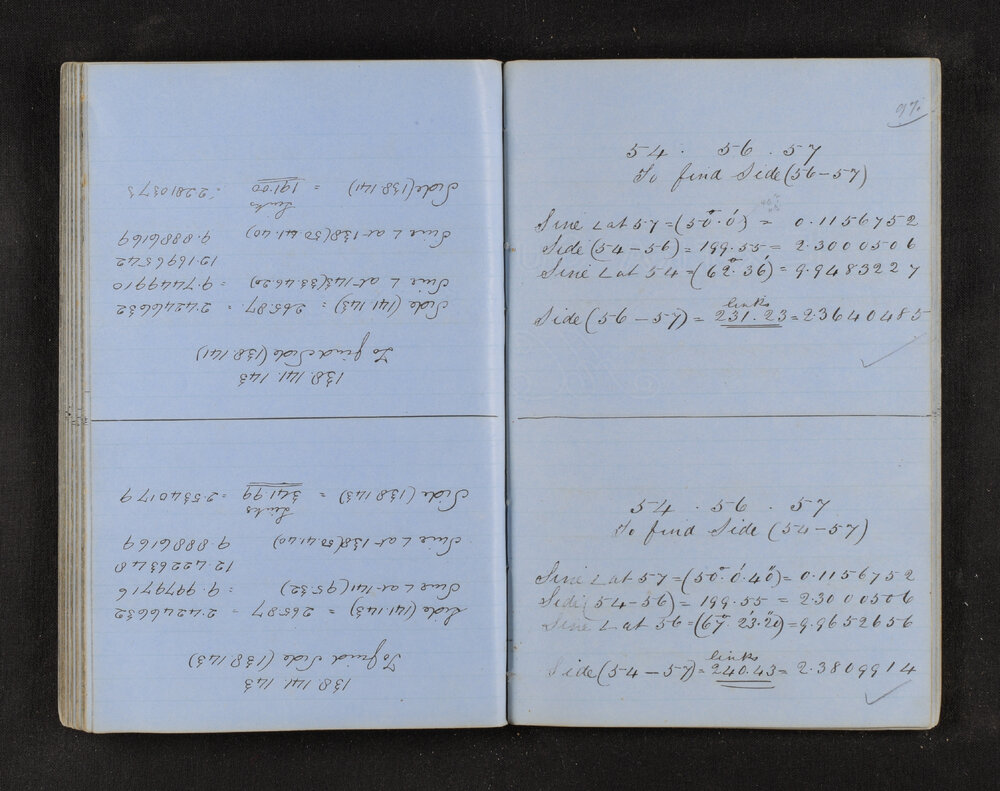 138. 141. 143
To find Side (138.143)
Side (141.143) = 265.87 = 2.4246632
Sine ∠ at 141 (95.32) = 9.9979716
12.4226348
Sine ∠ at 138 (50.41.40) 9.8886169
Links
Side (138.143) = 341.99 = 2.5340179
138. 141. 143
To find Side (138.141)
Side (141.143) = 265.87 = 2.4246632
Sine ∠ at 143 (33.46.20) = 9.7449910
12.1696542
Sine ∠ at 138 (50.41.40) 9.8886169
Links
Side (138.141) = 191.00 = 2.2810373
97.
54 . 56 . 57
To find Side (56-57)
Sine ∠ at 57 = (50°. 0') = 0.1156752
Side (54-56) = 199.55 = 2.3000506
Sine ∠ at 54 = (62°. 36') = 9.9483227
links
Side (56-57) = 231.23 = 2.3640485
54 . 56 . 57
To find Side (54-57)
Sine ∠ at 57 = (50°. 0'. 40") = 0.1156752
Side (54-56) = 199.55 = 2.3000506
Sine ∠ at 56 = (67°. 23'. 20") = 9.9652656
links
Side (54-57) = 240.43 = 2.3809914